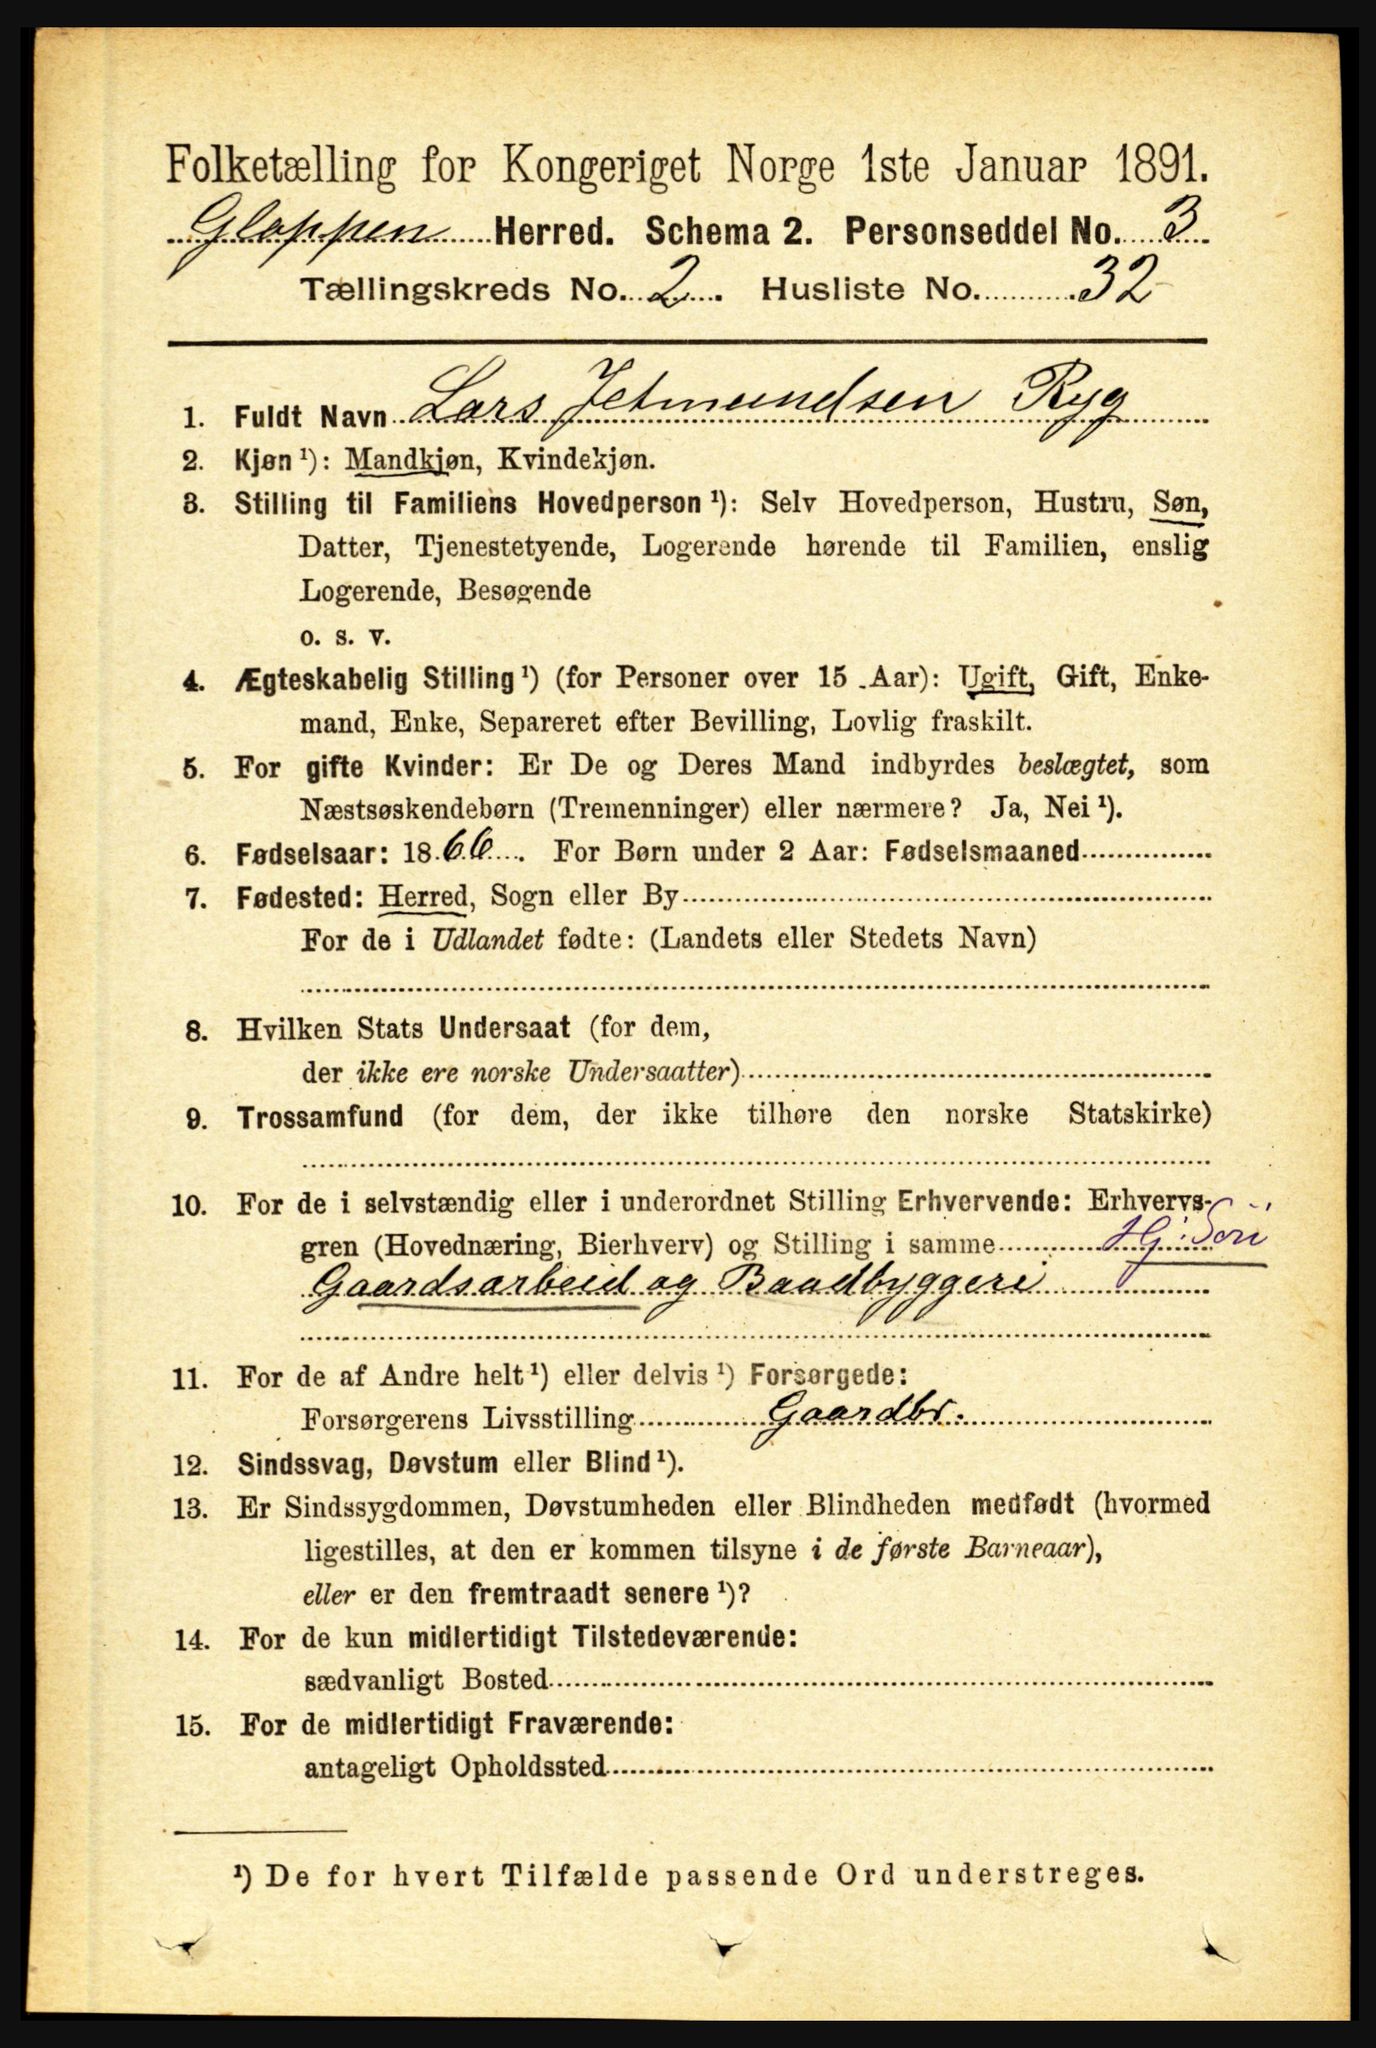 Folketælling for Kongeriget Norge 1ste Januar 1891.
Gloppen Herred. Schema 2. Personseddel No. 3
Tællingskreds No. 2. Husliste No. 32
1. Fuldt Navn Lars Jetmundsen Ryg
2. Kjøn ¹): Mandkjøn, Kvindekjøn.
3. Stilling til Familiens Hovedperson ¹): Selv Hovedperson, Hustru, Søn,
Datter, Tjenestetyende, Logerende hørende til Familien, enslig
Logerende, Besøgende
o. s. v.
4. Ægteskabelig Stilling ¹) (for Personer over 15 Aar): Ugift, Gift, Enke-
mand, Enke, Separeret efter Bevilling, Lovlig fraskilt.
5. For gifte Kvinder: Er De og Deres Mand indbyrdes beslægtet, som
Næstsøskendebørn (Tremenninger) eller nærmere? Ja, Nei ¹).
6. Fødselsaar: 1866. For Børn under 2 Aar: Fødselsmaaned
7. Fødested: Herred, Sogn eller By
For de i Udlandet fødte: (Landets eller Stedets Navn)
8. Hvilken Stats Undersaat (for dem,
der ikke ere norske Undersaatter)
9. Trossamfund (for dem, der ikke tilhøre den norske Statskirke)
10. For de i selvstændig eller i underordnet Stilling Erhvervende: Erhvervs-
gren (Hovednæring, Bierhverv) og Stilling i samme Hj. Søn
Gaardsarbeid og Baadbyggeri
11. For de af Andre helt ¹) eller delvis ¹) Forsørgede:
Forsørgerens Livsstilling Gaardbr.
12. Sindssvag, Døvstum eller Blind ¹).
13. Er Sindssygdommen, Døvstumheden eller Blindheden medfødt (hvormed
ligestilles, at den er kommen tilsyne i de første Barneaar),
eller er den fremtraadt senere ¹)?
14. For de kun midlertidigt Tilstedeværende:
sædvanligt Bosted
15. For de midlertidigt Fraværende:
antageligt Opholdssted
¹) De for hvert Tilfælde passende Ord understreges.